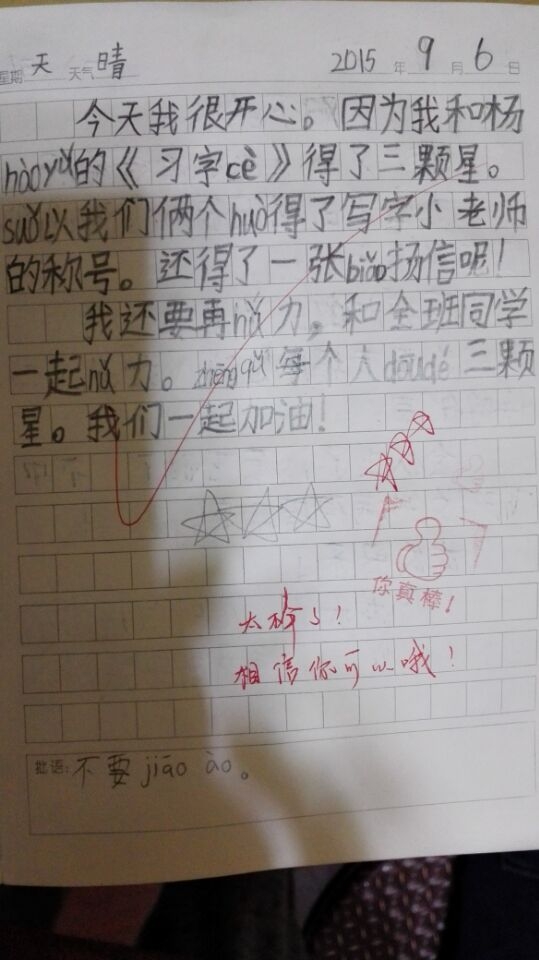 星期 天 天气 晴 2015 年 9 月 6 日
今天我很开心。因为我和杨
hàoyǔ的《习字cè》得了三颗星。
suǒ以我们俩个huò得了写字小老师
的称号。还得了一张biǎo扬信呢！
我还要再nǔ力，和全班同学
一起nǔ力。zhēngqǔ每个人dōudé三颗
星。我们一起加油！
你真棒！
太棒了！
相信你可以哦！
批语：不要jiāo ào。